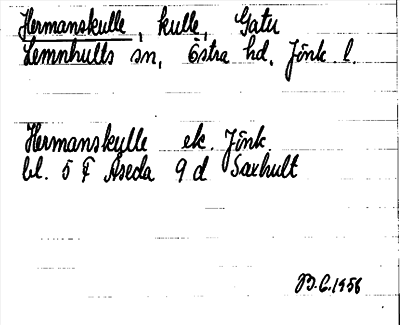 Hermanskulle, kulle, Gatu
Lemnhults sn, Östra hd, Jönk l.
Hermanskylle ek. Jönk.
bl. 5 F Åseda 9 d Saxhult
B.C. 1956